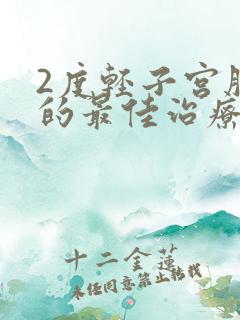 2度轻子宫脱
的最佳治疗
十二金莲
未经同意禁止转载